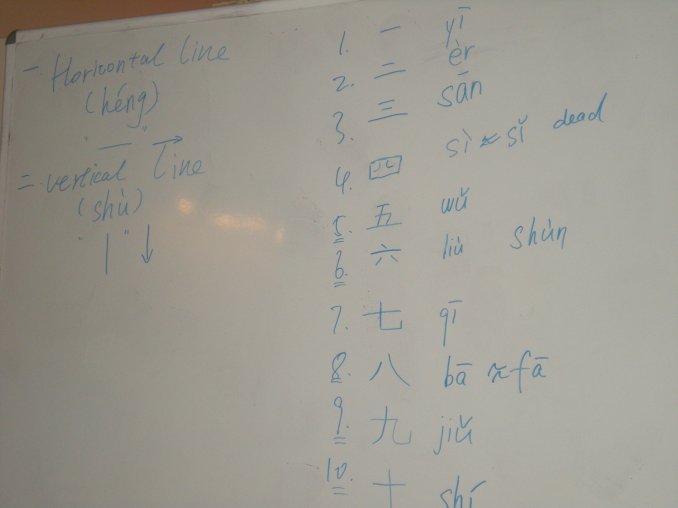 一 Horicontal line
(héng)
"一" →
二 vertical Line
(shù)
"丨" ↓
1. 一 yī
2. 二 èr
3. 三 sān
4. 四 sì ≈ sǐ dead
5. 五 wǔ
6. 六 liù shùn
7. 七 qī
8. 八 bā ≈ fā
9. 九 jiǔ
10. 十 shí